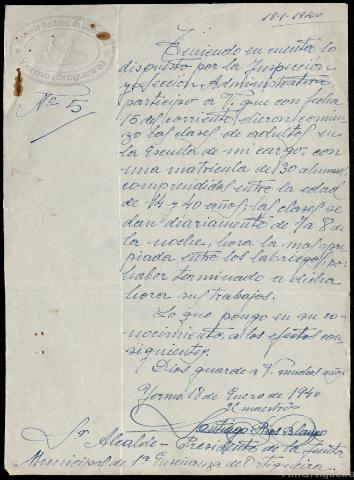 18-1-1940
Escuela Nacional de
Yermo (Ortigueira)
Nº 5
Teniendo en cuenta lo
dispuesto por la Inspección
y Sección Administrativa,
participo a V. que con fecha
15 del corriente dieron comien-
zo las clases de adultos en
la Escuela de mi cargo, con
una matrícula de 30 alumnos
comprendidos entre la edad
de 14 y 40 años; las clases se
dan diariamente de 7 a 8 de
la noche, hora la mas apro-
piada entre los labriegos, por
haber terminado a dicha
hora sus trabajos.
Lo que pongo en su co-
nocimiento, a los efectos con-
siguientes.
Dios guarde a V. muchos años
Yermo 18 de Enero de 1940
El maestro
Santiago Blanco
Sr. Alcalde-Presidente de la Junta
Municipal de 1ª Enseñanza de Ortigueira